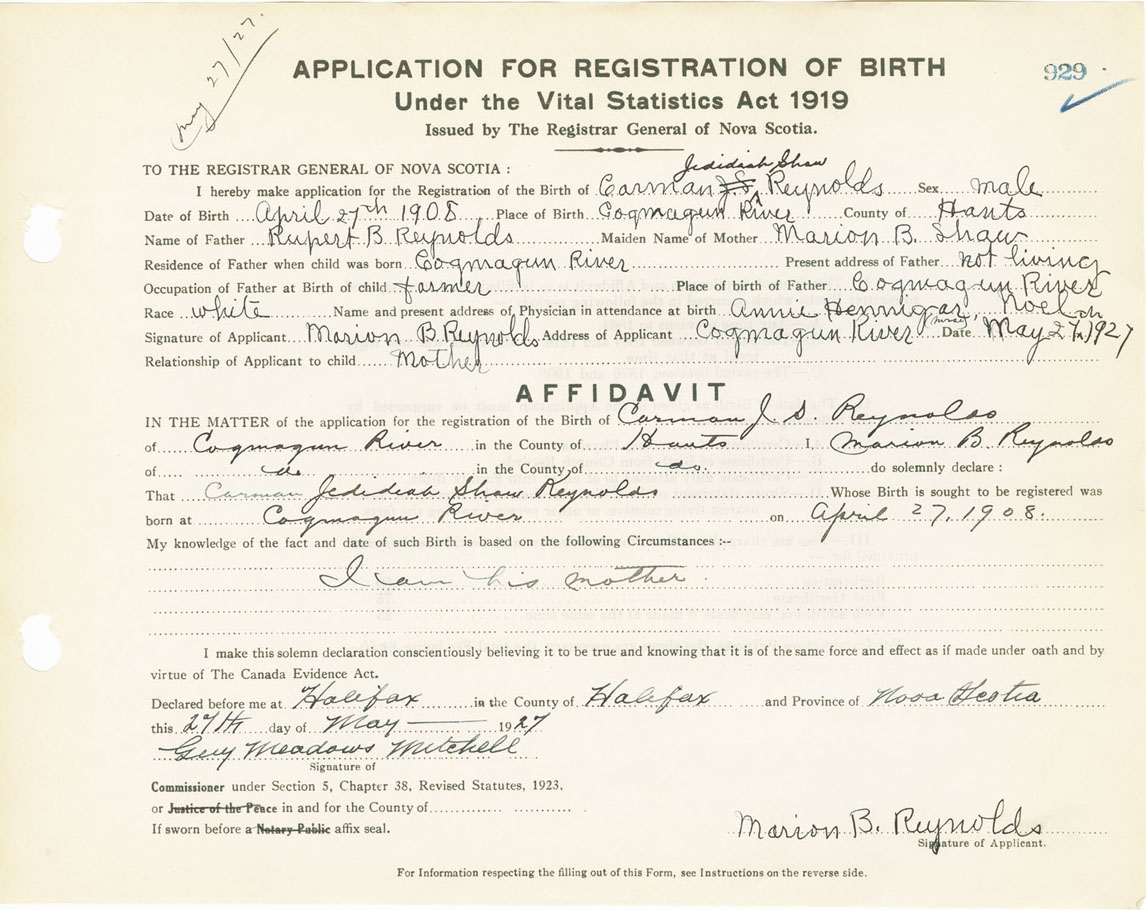 May 27/27.
APPLICATION FOR REGISTRATION OF BIRTH
929
Under the Vital Statistics Act 1919
Issued by The Registrar General of Nova Scotia.
TO THE REGISTRAR GENERAL OF NOVA SCOTIA :
Jedidiah Shaw
I hereby make application for the Registration of the Birth of Carman J.S. Reynolds Sex male
Date of Birth April 27th 1908 Place of Birth Cogmagun River County of Hants
Name of Father Rupert B. Reynolds Maiden Name of Mother Marion B. Shaw
Residence of Father when child was born Cogmagun River Present address of Father not living
Occupation of Father at Birth of child farmer Place of birth of Father Cogmagun River
Race white Name and present address of Physician in attendance at birth Annie Hennigar, Noel
nurse
Signature of Applicant Marion B Reynolds Address of Applicant Cogmagun River Date May 27, 1927
Relationship of Applicant to child Mother
AFFIDAVIT
IN THE MATTER of the application for the registration of the Birth of Carman J. S. Reynolds
of Cogmagun River in the County of Hants I, Marion B Reynolds
of do. in the County of do. do solemnly declare :
That Carman Jedidiah Shaw Reynolds Whose Birth is sought to be registered was
born at Cogmagun River on April 27, 1908.
My knowledge of the fact and date of such Birth is based on the following Circumstances :--
I am his mother.
I make this solemn declaration conscientiously believing it to be true and knowing that it is of the same force and effect as if made under oath and by
virtue of The Canada Evidence Act.
Declared before me at Halifax in the County of Halifax and Province of Nova Scotia
this 27th day of May 1927
Guy Meadows Mitchell
Signature of
Commissioner under Section 5, Chapter 38, Revised Statutes, 1923,
or Justice of the Peace in and for the County of
If sworn before a Notary Public affix seal.
Marion B. Reynolds
Signature of Applicant.
For Information respecting the filling out of this Form, see Instructions on the reverse side.